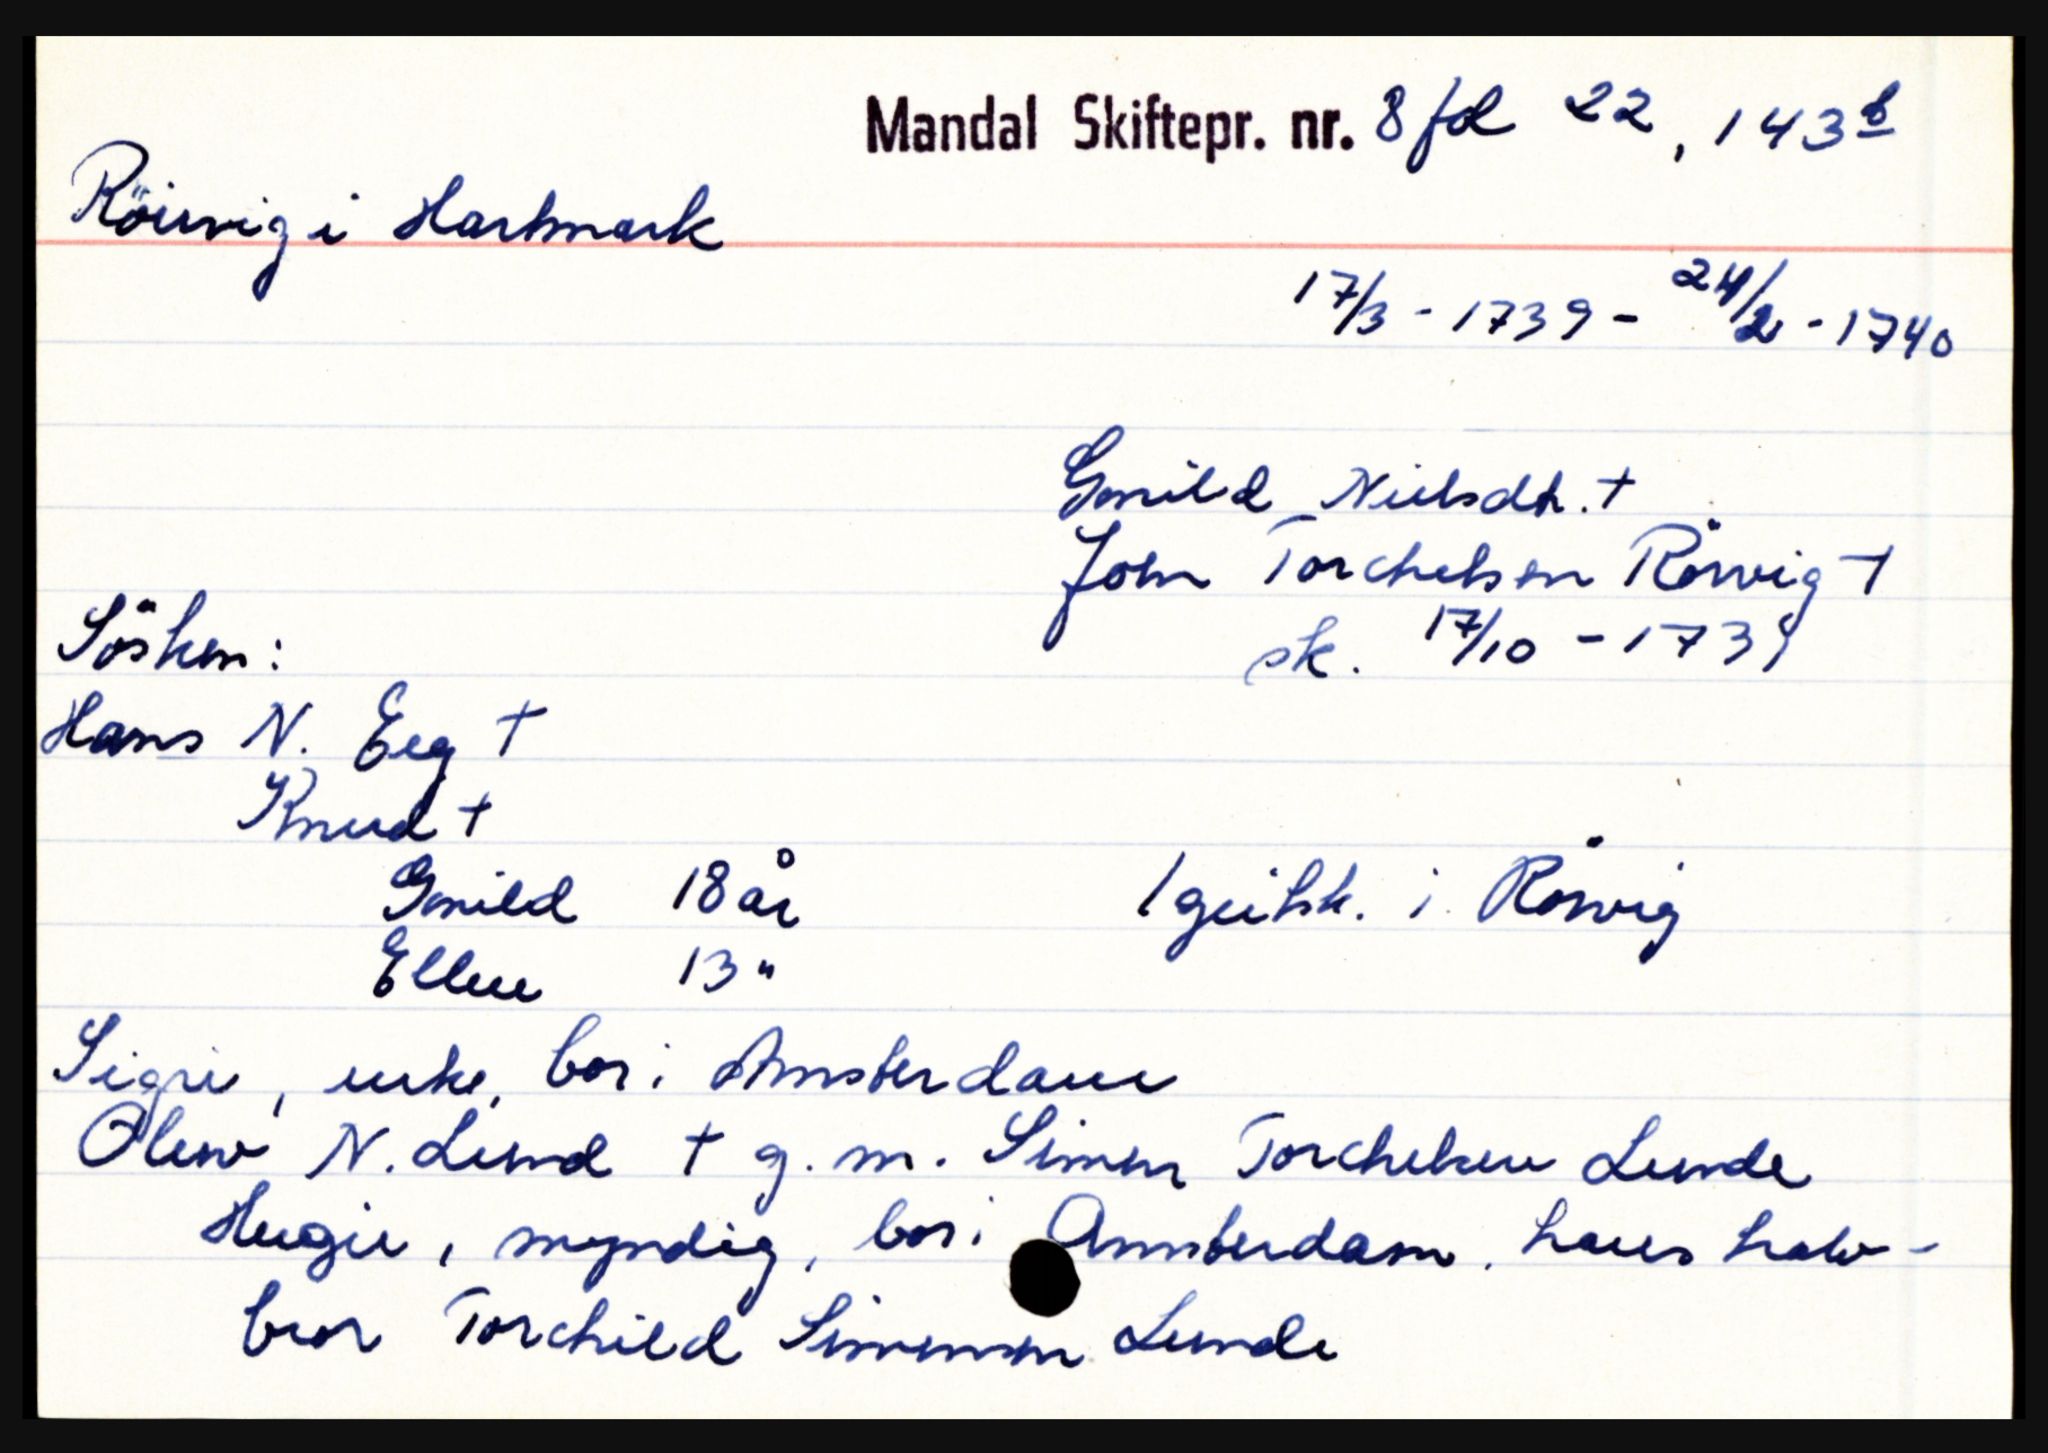 Mandal Skiftepr. nr. 8 fol 22, 143 b
Röirvig i Hartmark
17/3 - 1739 - 24/2 - 1740
Gunild Nielsdtr. †
John Torchelsen Rörvig †
sk. 17/10 - 1739
Sösken:
Hans N. Eeg †
Knud †
Gunild 18 år
1 geilsk. i Rörvig
Ellen 13 "
Sigri, enke, bor i Amsterdam
Olene N. Lund † g. m. Simen Torchelsen Lunde
, myndig, bor i Amsterdam. hans halv-
bror Torchild Simensen Lunde